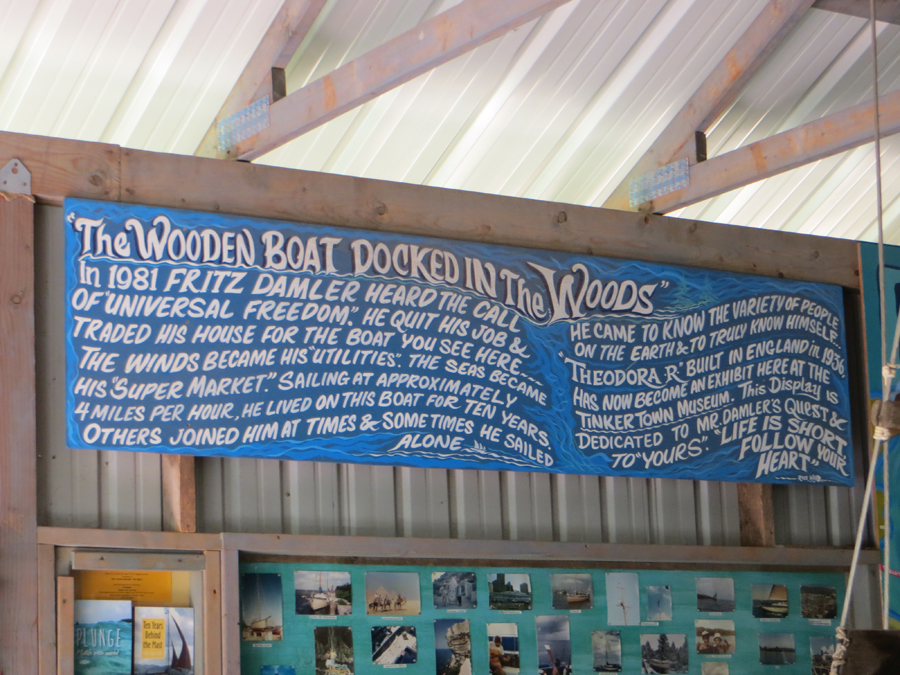 "The WOODEN BOAT DOCKED IN The WOODS"
In 1981 FRITZ DAMLER HEARD THE CALL
OF "UNIVERSAL FREEDOM." HE QUIT HIS JOB &
TRADED HIS HOUSE FOR THE BOAT YOU SEE HERE...
THE WINDS BECAME HIS "UTILITIES". THE SEAS BECAME
HIS "SUPER MARKET." SAILING AT APPROXIMATELY
4 MILES PER HOUR, HE LIVED ON THIS BOAT FOR TEN YEARS.
OTHERS JOINED HIM AT TIMES & SOMETIMES HE SAILED
ALONE
HE CAME TO KNOW THE VARIETY OF PEOPLE
ON THE EARTH & TO TRULY KNOW HIMSELF.
"THEODORA R." BUILT IN ENGLAND in 1936
HAS NOW BECOME AN EXHIBIT HERE AT THE
TINKERTOWN MUSEUM. This Display is
DEDICATED TO MR. DAMLER'S QUEST &
TO "YOURS". "LIFE IS SHORT,
FOLLOW YOUR
HEART"
PLUNGE
Ten Years
Behind the
Mast